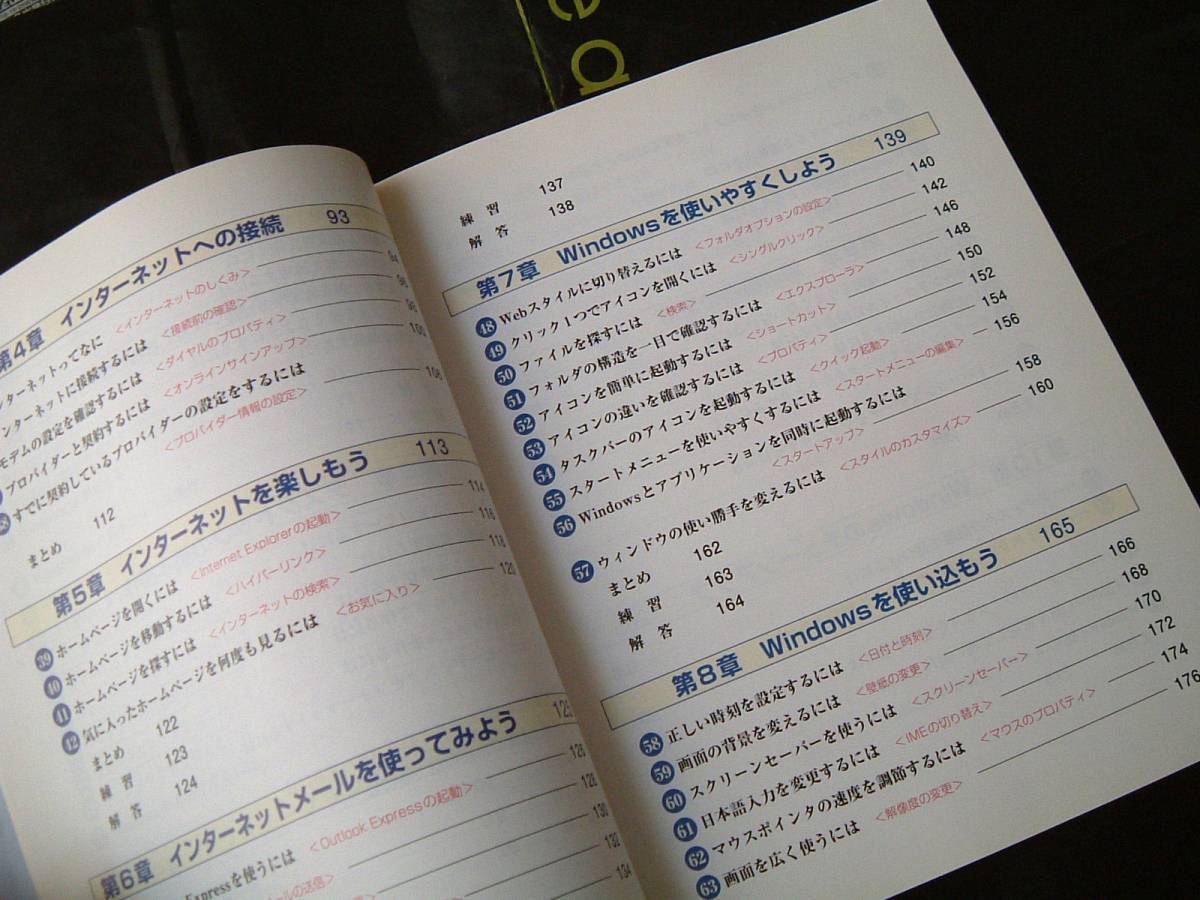 e d
第4章 インターネットへの接続 93
ターネットってなに <インターネットのしくみ> 94
ンターネットに接続するには <接続前の確認> 96
モデムの設定を確認するには <ダイヤルのプロパティ> 98
プロバイダーと契約するには <オンラインサインアップ> 100
すでに契約しているプロバイダーの設定をするには <プロバイダー情報の設定> 108
まとめ 112
第5章 インターネットを楽しもう 113
39 ホームページを開くには <Internet Explorerの起動> 114
40 ホームページを移動するには <ハイパーリンク> 116
41 ホームページを探すには <インターネットの検索> 118
42 気に入ったホームページを何度も見るには <お気に入り> 120
まとめ 122
練習 123
解答 124
第6章 インターネットメールを使ってみよう 125
Expressを使うには <Outlook Expressの起動> 126
ールの送信> 128
130
132
134
練習 137
解答 138
第7章 Windowsを使いやすくしよう 139
48 Webスタイルに切り替えるには <フォルダオプションの設定> 140
49 クリック1つでアイコンを開くには <シングルクリック> 142
50 ファイルを探すには <検索> 146
51 フォルダの構造を一目で確認するには <エクスプローラ> 148
52 アイコンを簡単に起動するには <ショートカット> 150
53 アイコンの違いを確認するには <プロパティ> 152
54 タスクバーのアイコンを起動するには <クイック起動> 154
55 スタートメニューを使いやすくするには <スタートメニューの編集> 156
56 Windowsとアプリケーションを同時に起動するには <スタートアップ> 158
57 ウィンドウの使い勝手を変えるには <スタイルのカスタマイズ> 160
まとめ 162
練習 163
解答 164
第8章 Windowsを使い込もう 165
58 正しい時刻を設定するには <日付と時刻> 166
59 画面の背景を変えるには <壁紙の変更> 168
60 スクリーンセーバーを使うには <スクリーンセーバー> 170
61 日本語入力を変更するには <IMEの切り替え> 172
62 マウスポインタの速度を調節するには <マウスのプロパティ> 174
63 画面を広く使うには <解像度の変更> 176